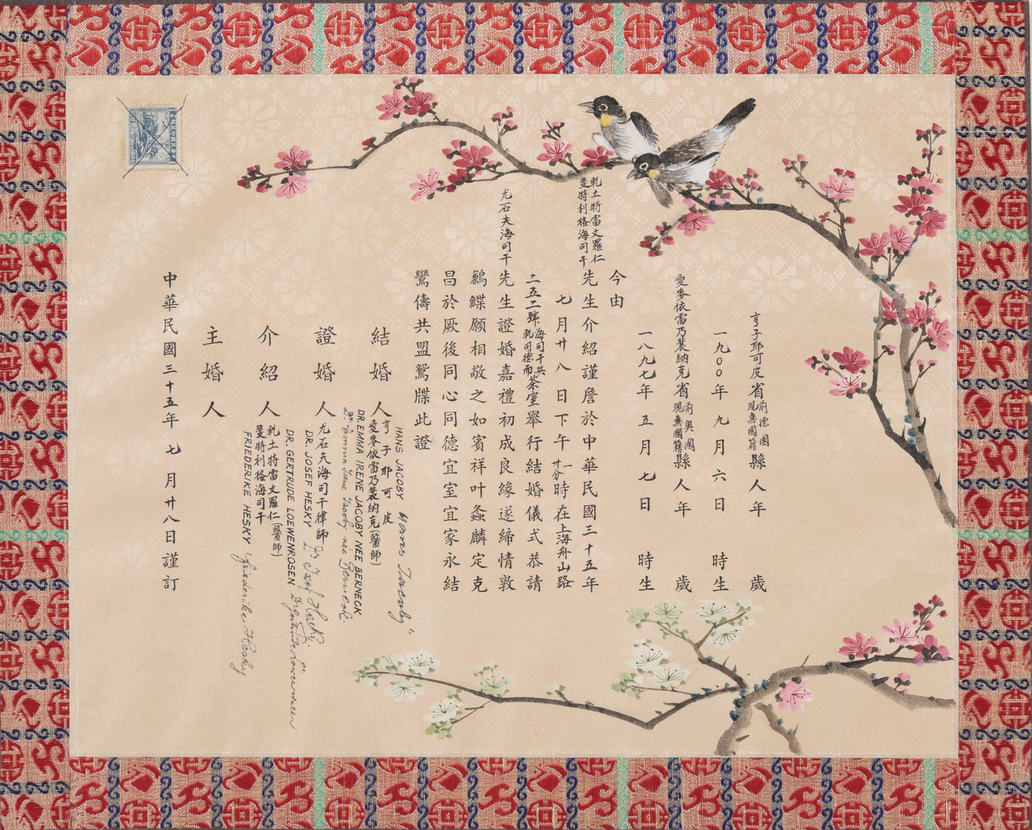 亨子耶可皮省前德國現無國籍縣人年 歲
一九〇〇年 九月六日 時生
愛麥依雷乃裴納克省前奧國現無國籍縣人年 歲
一八九七年 五月七日 時生
今由
乾士特雷文羅仁
蔓特利格海司干
先生介紹謹詹於中華民國三十五年
七月廿八日下午一時廿分在上海舟山路
二五二號海司干共乾司德而茶室舉行結婚儀式恭請
尤石夫海司干先生證婚嘉禮初成良緣遂締情敦
鶼鰈願相敬之如賓祥叶螽麟定克
昌於厥後同心同德宜室宜家永結
鸞儔共盟鴛牒此證
結婚人
HANS JACOBY Hans Jacoby
亨子耶可皮
愛麥依雷乃裴納克(醫師)
DR. EMMA IRENE JACOBY NEE BERNECK
Dr. Emma Irene Jacoby née Berneck
證婚人
尤石夫海司干律師
DR. JOSEF HESKY Dr Josef Hesky
介紹人
DR. GERTRUDE LOEWENROSEN
乾士特雷文羅仁(醫師)
蔓特利格海司干
FRIEDERIKE HESKY Friederike Hesky
主婚人
中華民國三十五年 七月廿八日謹訂